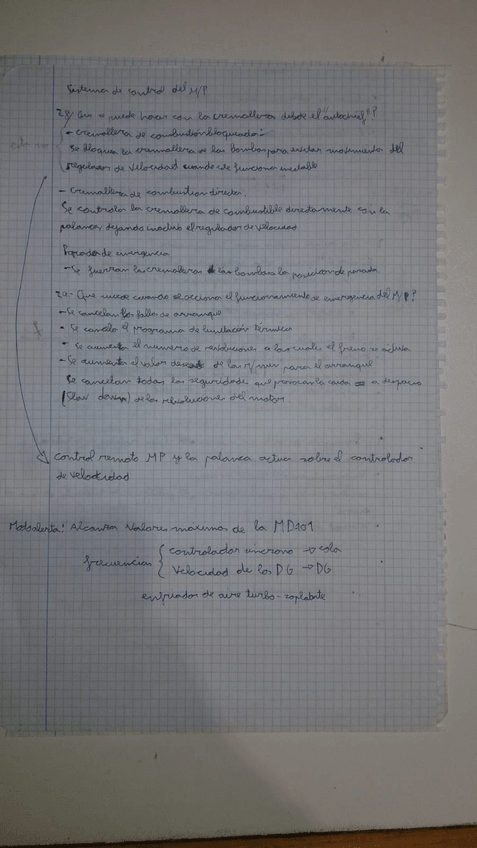 Sistemas de control del M/P
28/ Que se puede hacer con la cremallera desde el "autochief"?
- cremallera de combustión bloqueada:
Se bloquea la cremallera de las bombas para evitar movimientos del
regulador de velocidad cuando este funciona inestable
- cremallera de combustion directa.
Se controla la cremallera de combustible directamente con la
palanca dejando inactivo el regulador de velocidad
Parada de emergencia
- Se fuerzan las cremalleras de las bombas la posicion de parada
29- Que sucede cuando se acciona el funcionamiento de emergencia del M/P?
- Se cancelan los fallos de arranque
- Se cancela el programa de limitación termica
- Se aumenta el numero de revoluciones a las cuales el freno se activa
- Se aumenta el valor de las r/min para el arranque
Se cancelan todas las seguridades que provocan la caida a despacio
(Slow down) de las revoluciones del motor
control remoto MP y la palanca actua sobre el controlador
de velocidad
Modo alerta: Alcanza Valores maximos de la MD101
frecuencias controlador sincrono → cola
Velocidad de los DG → DG
enfriador de aire turbo-soplante